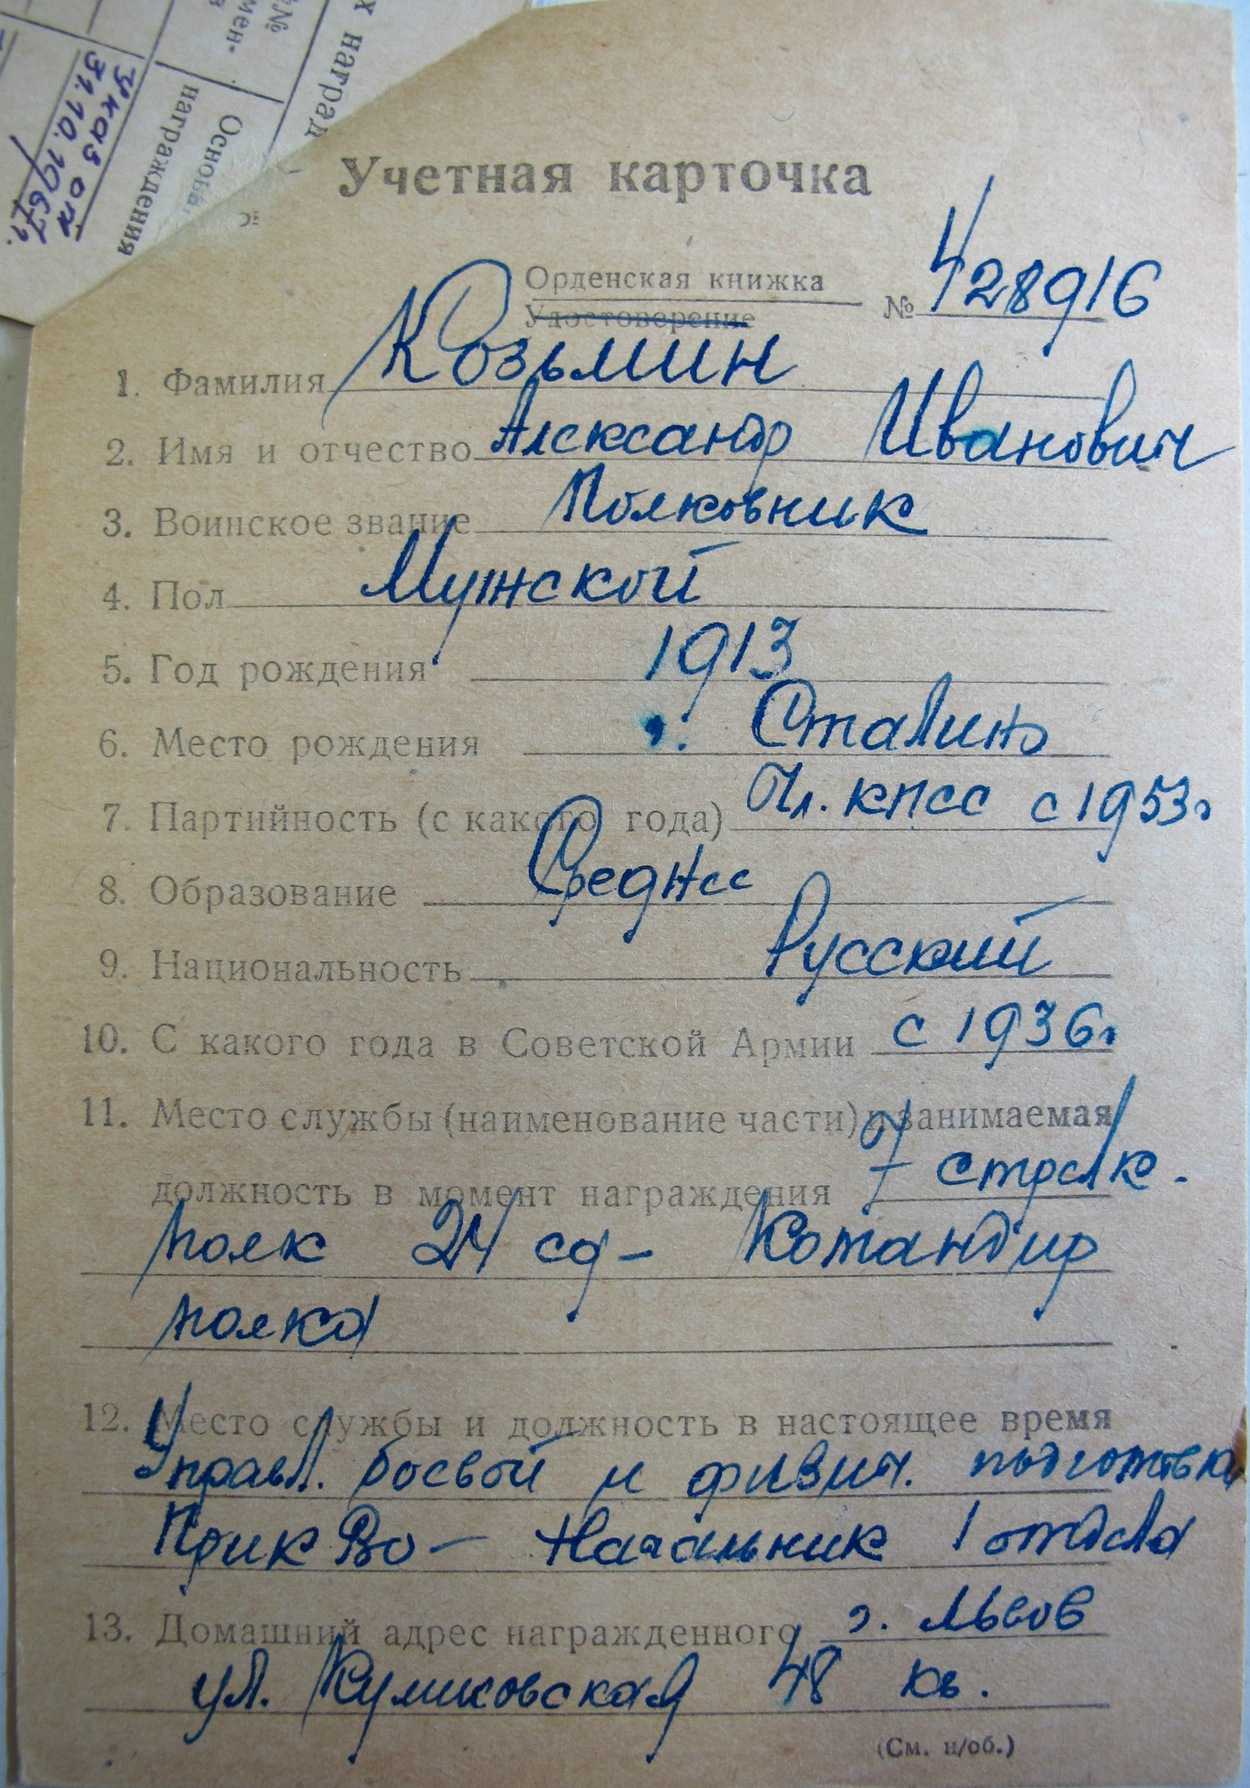 х наград
№
мен-
Основа
награждения
Указ от
31.10.1967г.
Учетная карточка
Орденская книжка
Удостоверение
№ 428916
1. Фамилия Козьмин
2. Имя и отчество Александр Иванович
3. Воинское звание Полковник
4. Пол Мужской
5. Год рождения 1913
6. Место рождения г. Сталино
7. Партийность (с какого года) Чл. КПСС с 1953г
8. Образование Среднее
9. Национальность Русский
10. С какого года в Советской Армии с 1936г
11. Место службы (наименование части) и занимаемая
должность в момент награждения 7 стрелк.
полк 24 сд - Командир
полка
12. Место службы и должность в настоящее время
Управл. боевой и физич. подготовка
ПрикВо - Начальник 1 отдела
13. Домашний адрес награжденного г. Львов
ул. Куликовская 48 кв.
(См. н/об.)